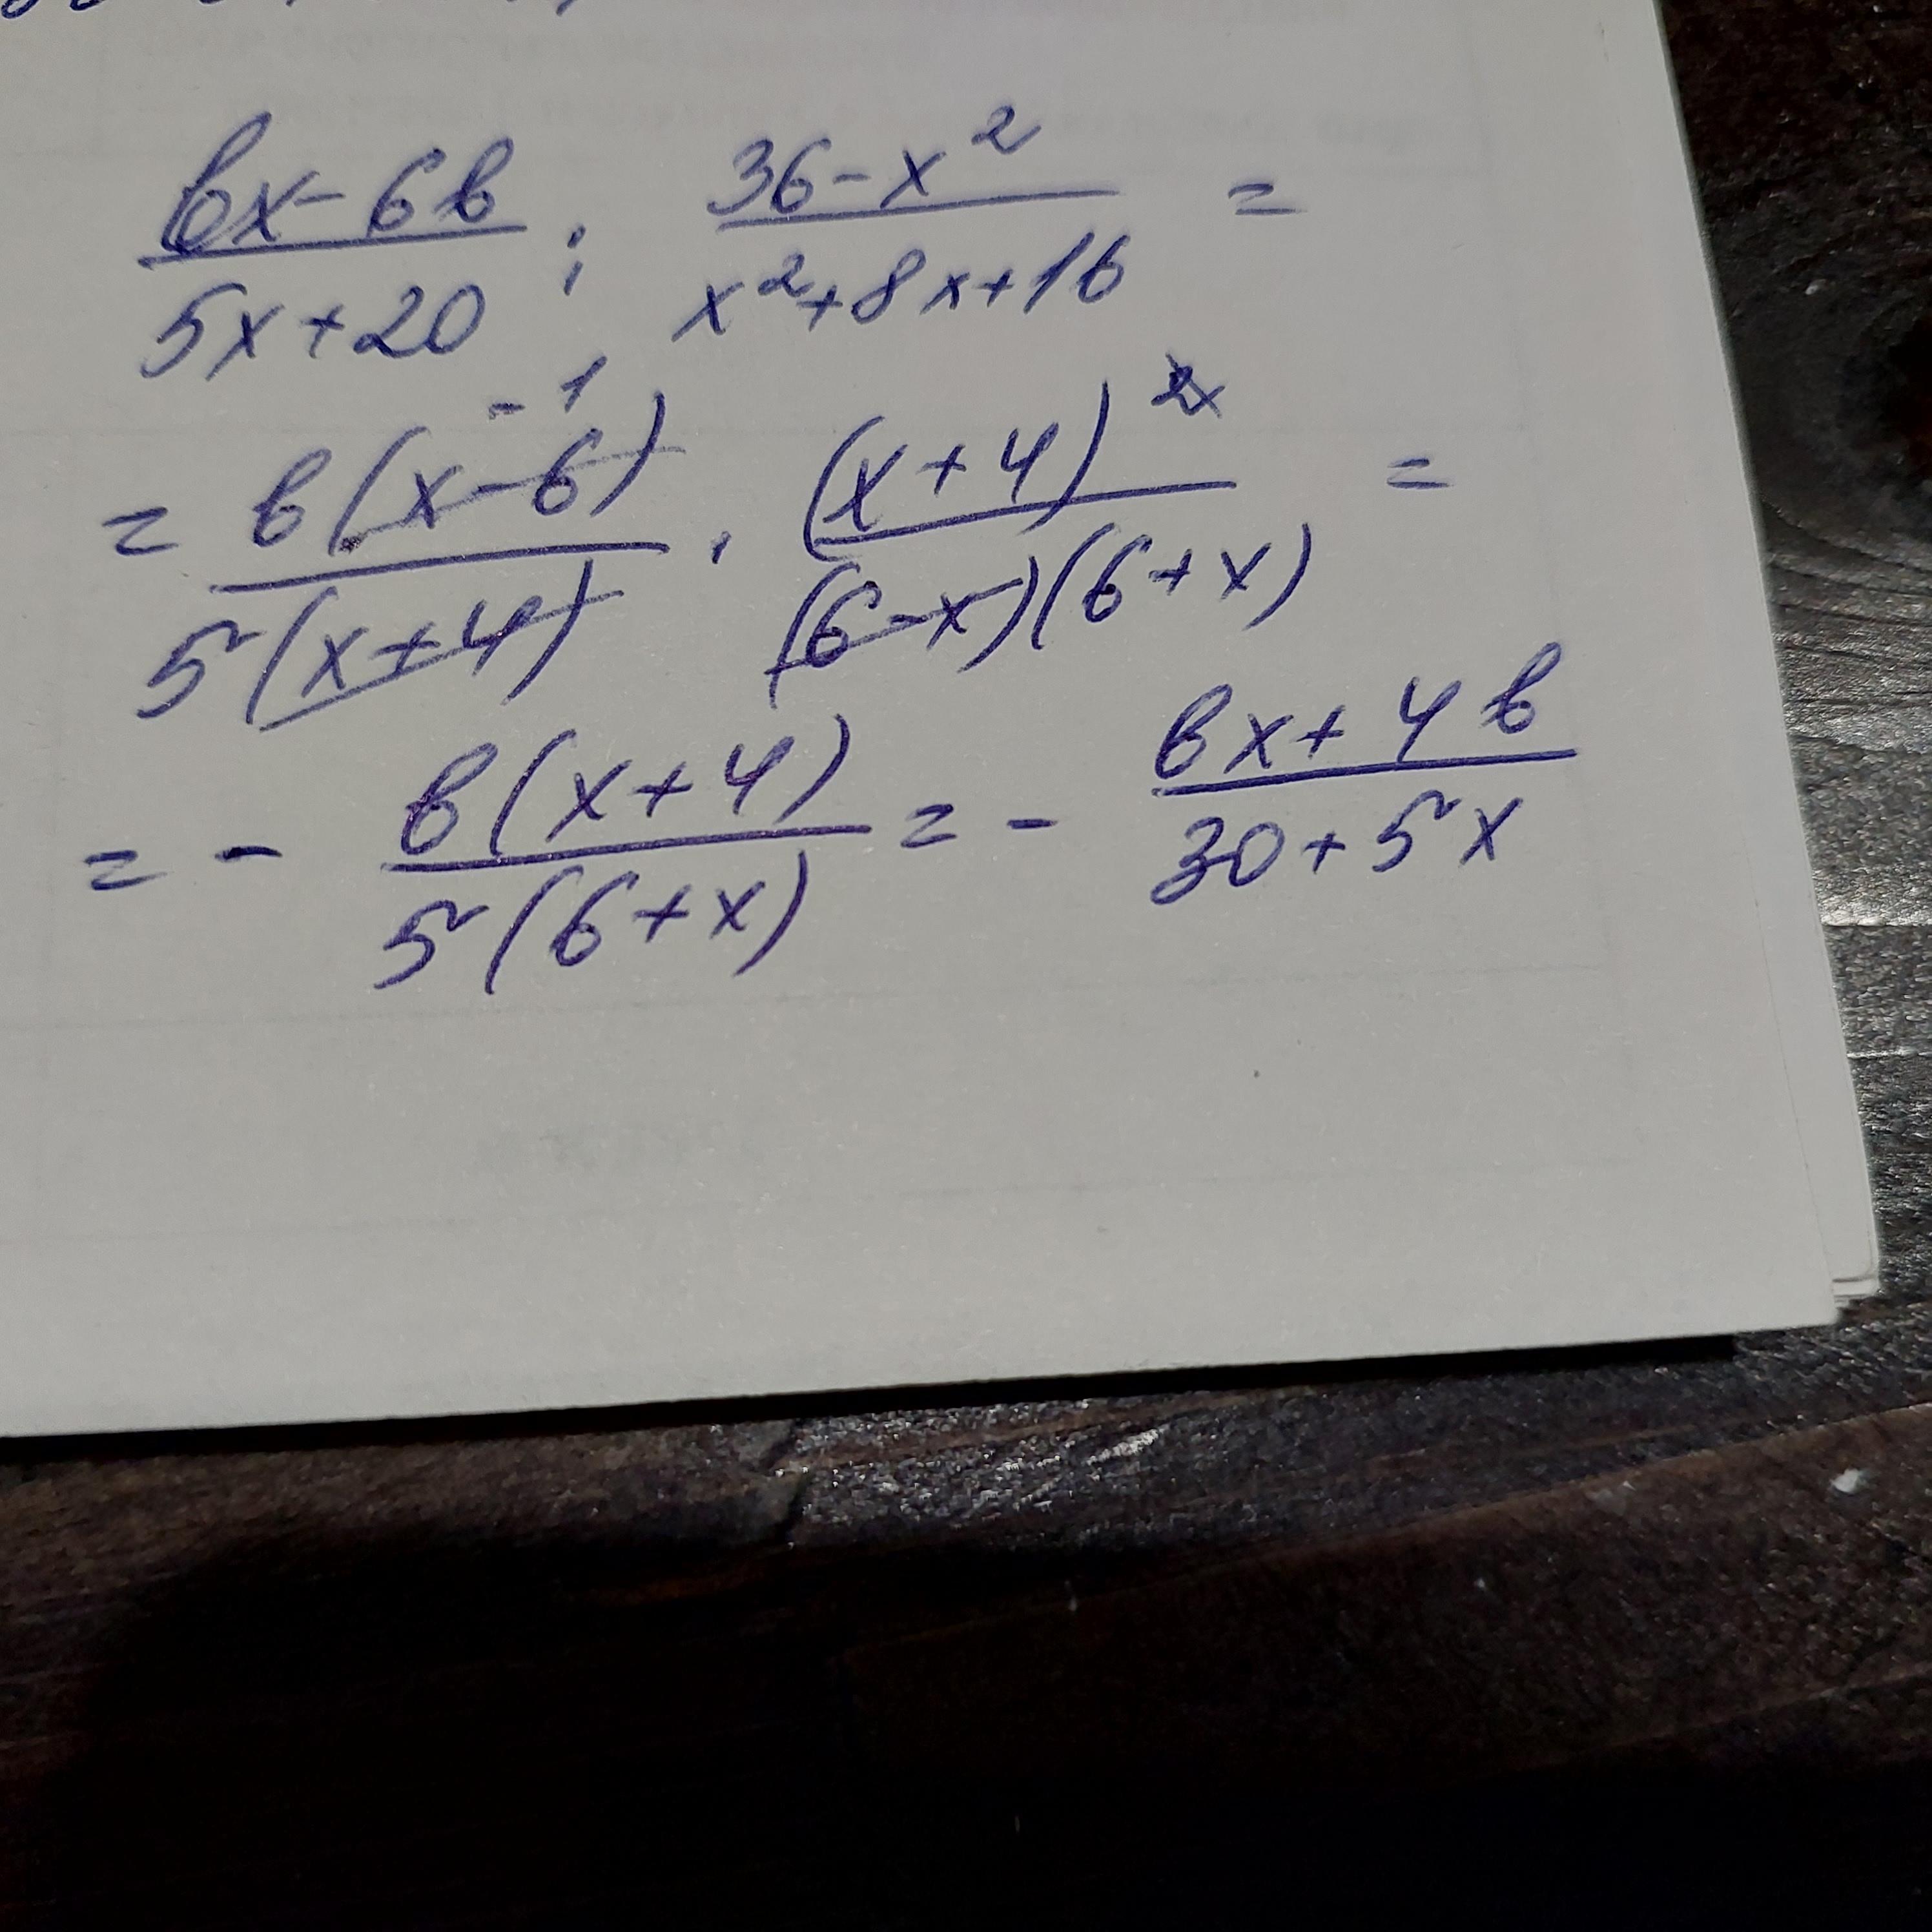 (bx-6b)/(5x+20) : (36-x²)/(x²+8x+16) =
= b(x-6)⁻¹/5(x+4) · (x+4)²/(6-x)(6+x) =
= - b(x+4)/5(6+x) = - (bx+4b)/(30+5x)